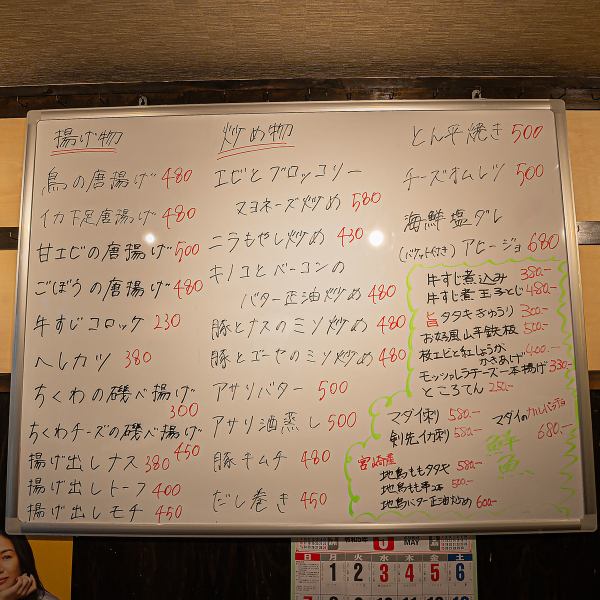 揚げ物
鳥の唐揚げ 480
イカ下足唐揚げ 480
甘エビの唐揚げ 500
ごぼうの唐揚げ 480
牛すじコロッケ 230
ヘレカツ 380
ちくわの磯べ揚げ
300
ちくわチーズの磯べ揚げ
450
揚げ出しナス 380
揚げ出しトーフ 400
揚げ出しモチ 450
炒め物
エビとブロッコリー
マヨネーズ炒め 580
ニラもやし炒め 430
キノコとベーコンの
バター正油炒め 480
豚とナスのミソ炒め 480
豚とゴーヤのミソ炒め 480
アサリバター 500
アサリ酒蒸し 500
豚キムチ 480
だし巻き 450
とん平焼き 500
チーズオムレツ 500
海鮮塩ダレ
(バケット付き) アヒージョ 680
牛すじ煮込み 380-
牛すじ煮玉子とじ 480-
旨タタキきゅうり 300-
お好風山芋鉄板 500-
桜エビと紅しょうが
かきあげ 400-
モッツァレラチーズ一本揚げ 330-
ところてん 250-
マダイ刺 580-
剣先イカ刺 580-
マダイのカルパッチョ
680-
鮮魚
宮崎産
地鳥ももタタキ 580-
地鳥バター正油炒め 600-
令和5年 6 MAY
日 月 火 水 木 金 土
1 2 3 4 5 6